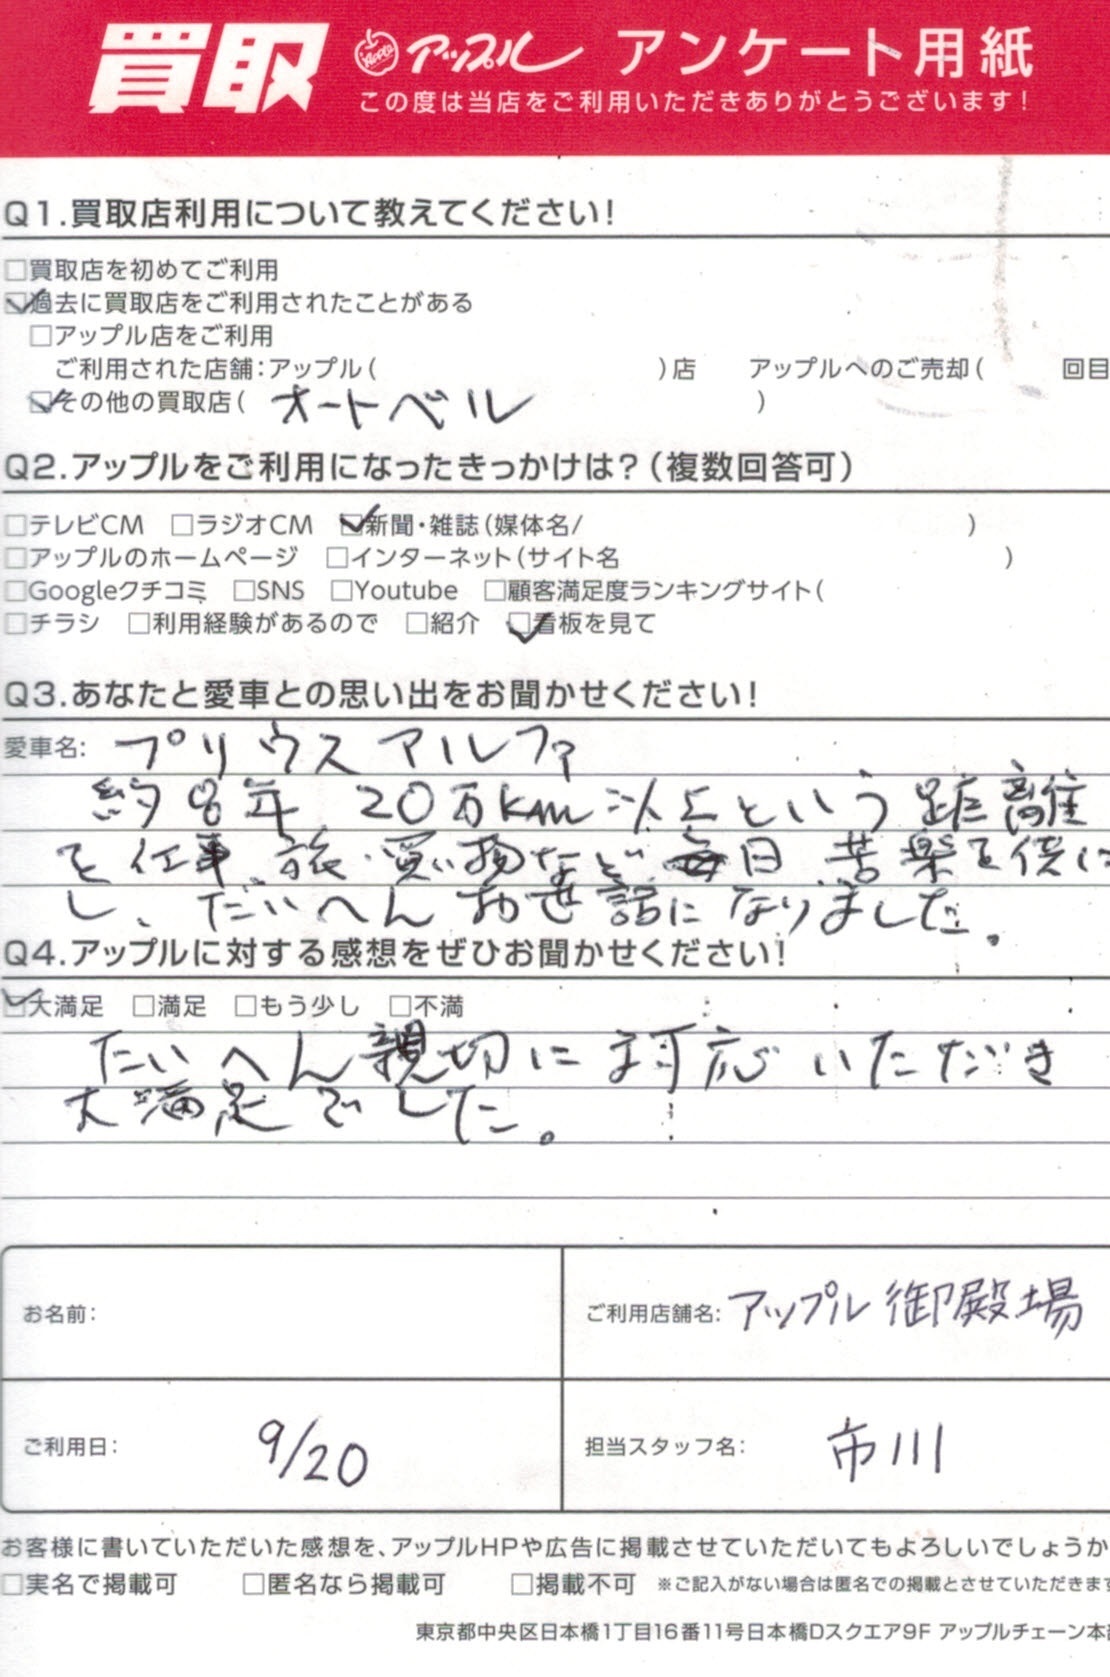 買取 Apple アップル アンケート用紙
この度は当店をご利用いただきありがとうございます!
Q1.買取店利用について教えてください!
□買取店を初めてご利用
☑過去に買取店をご利用されたことがある
□アップル店をご利用
ご利用された店舗:アップル( )店 アップルへのご売却( 回目
☑その他の買取店( オートベル )
Q2.アップルをご利用になったきっかけは?(複数回答可)
□テレビCM □ラジオCM ☑新聞・雑誌(媒体名/ )
□アップルのホームページ □インターネット(サイト名 )
□Googleクチコミ □SNS □Youtube □顧客満足度ランキングサイト(
□チラシ □利用経験があるので □紹介 ☑看板を見て
Q3.あなたと愛車との思い出をお聞かせください!
愛車名: プリウスアルファ
約8年 20万km以上という距離
を仕事、旅・買い物など、毎日 苦楽を供に
し、だいへんお世話になりました。
Q4.アップルに対する感想をぜひお聞かせください!
☑大満足 □満足 □もう少し □不満
たいへん親切に対応いただき
大満足でした。
お名前:
ご利用店舗名: アップル御殿場
ご利用日: 9/20
担当スタッフ名: 市川
お客様に書いていただいた感想を、アップルHPや広告に掲載させていただいてもよろしいでしょうか
□実名で掲載可 □匿名なら掲載可 □掲載不可 ※ご記入がない場合は匿名での掲載とさせていただきます
東京都中央区日本橋1丁目16番11号日本橋Dスクエア9F アップルチェーン本部